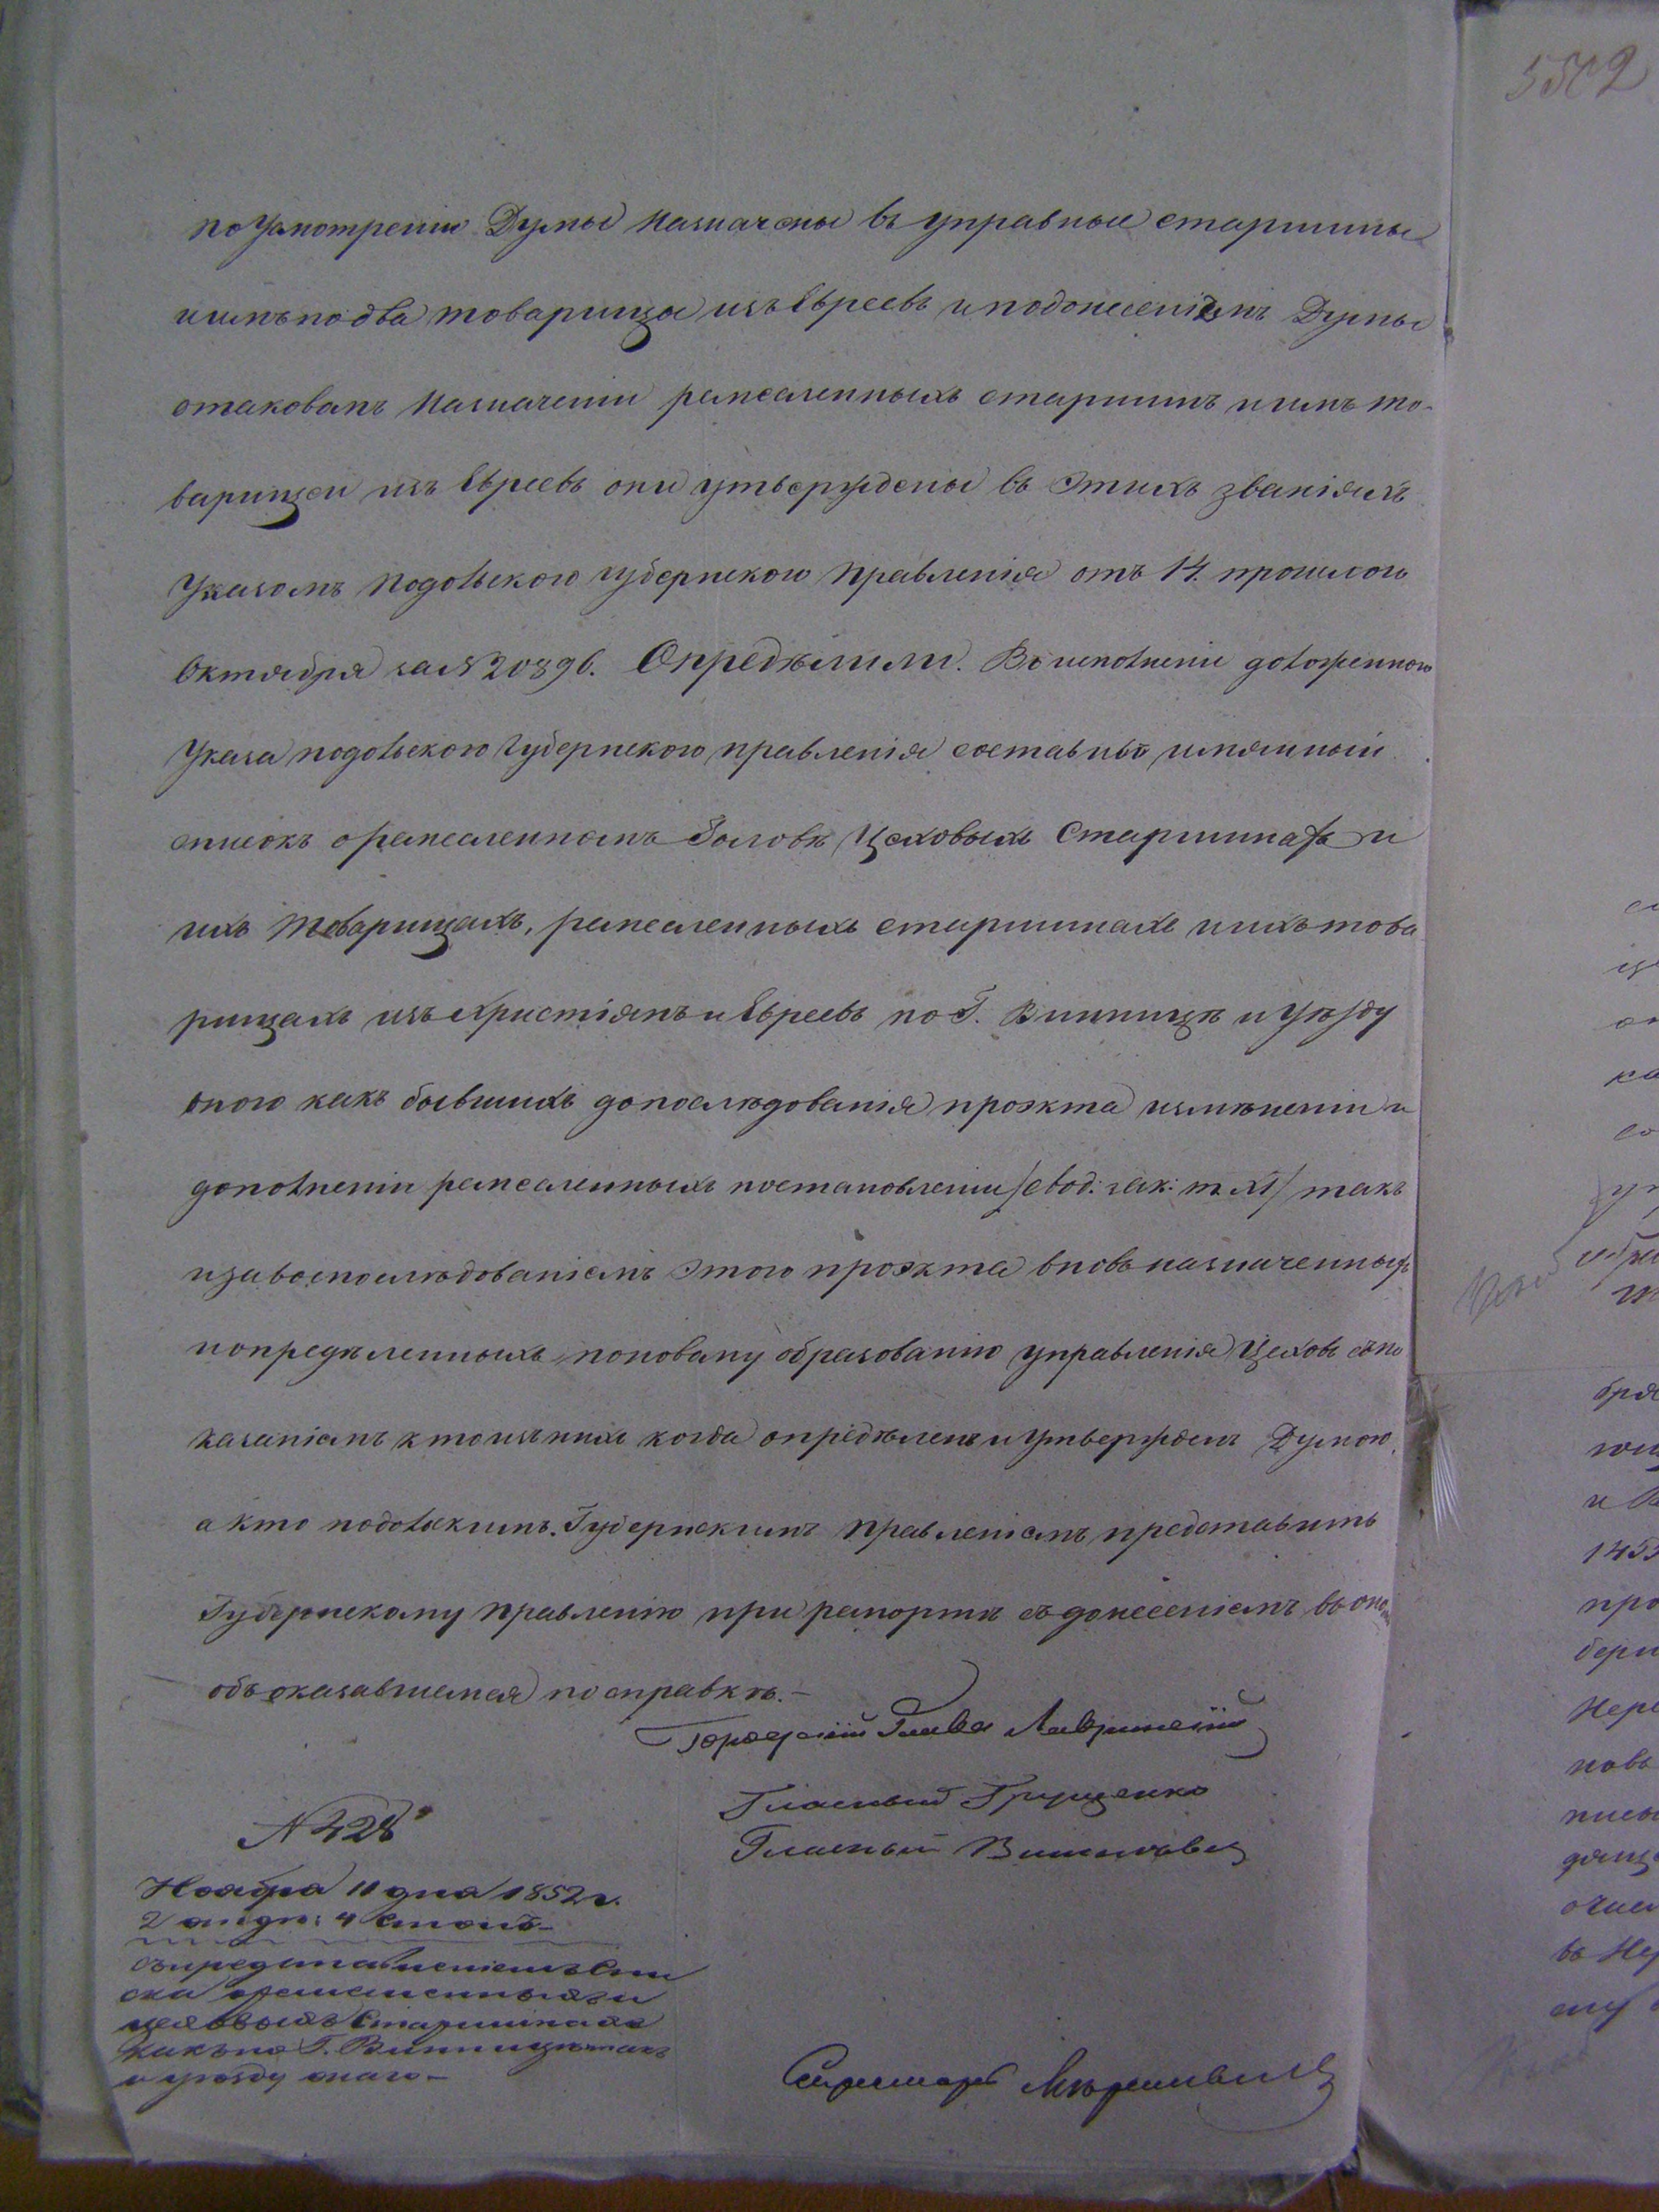 5502
по Усмотренію Думы Назначены въ управные старшины
и имъ по два товарища изъ Евреевъ и по донесеніямъ Думы
о таковомъ Назначеніи ремесленныхъ старшинъ и имъ то-
варищей изъ Евреевъ они утверждены въ этихъ званіяхъ
Указомъ Подольского Губернского Правленія отъ 14. прошлого
Октября за № 20896. Опредѣлили. Во исполненіе доложенного
Указа подольского Губернского правленія составивъ имянный
списокъ о ремесленномъ Головѣ, Цеховыхъ Старшинахъ и
ихъ товарищахъ, ремесленныхъ старшинахъ и ихъ това
рищахъ изъ Христіянъ и Евреевъ по Г. Винницѣ и Уѣзду
оного какъ бывшихъ до послѣдованія проэкта измѣненіи и
дополненіи ремесленныхъ постановленіи /свод: зак: т. XI/ такъ
и за воспослѣдованіемъ этого проэкта вновь назначенныхъ
и опредѣленныхъ по новому образованію управленія Цеховъ съ по
казаніемъ кто изъ нихъ когда опредѣленъ и Утвержденъ Думою,
а кто подольскимъ Губернскимъ Правленіемъ, представить
Губернскому Правленію при рапортѣ съ донесеніемъ въ оно
объ оказавшемся по справкѣ.-
Городской Глава Лавринскій
Гласный Грищенко
Гласный
№ 428
Ноября 11 дня 1852 г.
2 отдл: 4 столъ
съ представленіемъ спи
ска о ремесленныхъ и
цеховыхъ Старшинахъ
какъ по Г. Винницѣ такъ
и уѣзду оного-
Секретарь